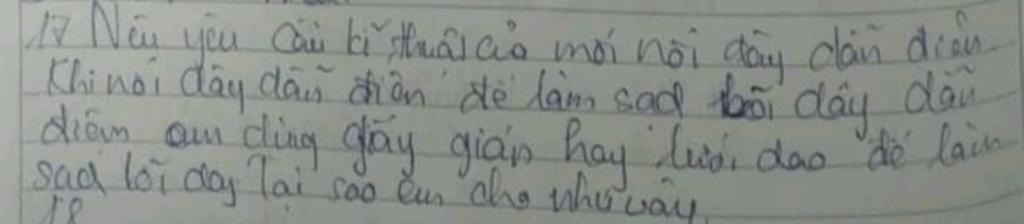 17 Nêu yêu cầu kĩ thuật của mối nối dây dẫn điện
Khi nối dây dẫn điện để làm sạch lõi dây dẫn
điện em dùng giấy giáp hay lưỡi dao để làm
sạch lõi dây Tại sao em cho như vậy
18